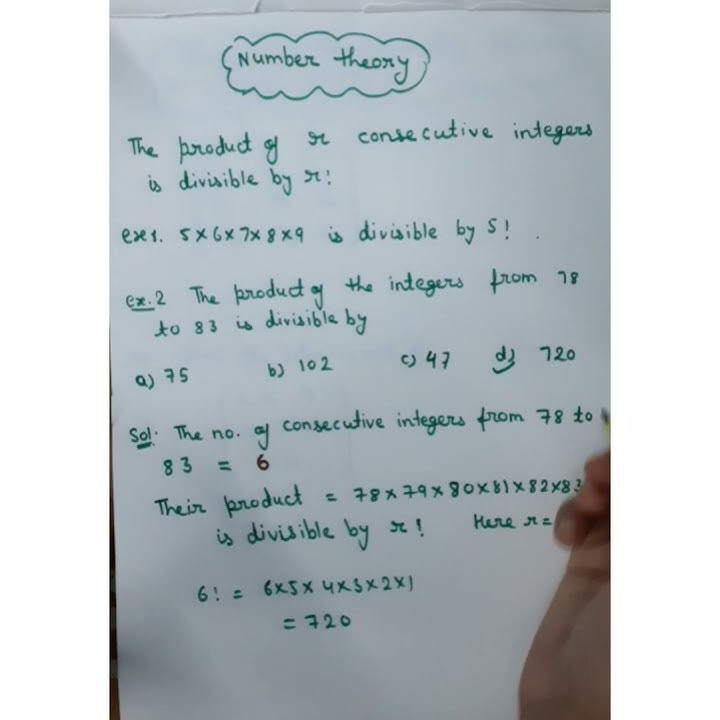 Number theory
The product of r consecutive integers
is divisible by r!
ex1. 5×6×7×8×9 is divisible by 5! .
ex.2 The product of the integers from 78
to 83 is divisible by
a) 75 b) 102 c) 47 d) 720
Sol: The no. of consecutive integers from 78 to
83 = 6
Their product = 78×79×80×81×82×83
is divisible by r! Here r=
6! = 6×5×4×3×2×1
= 720